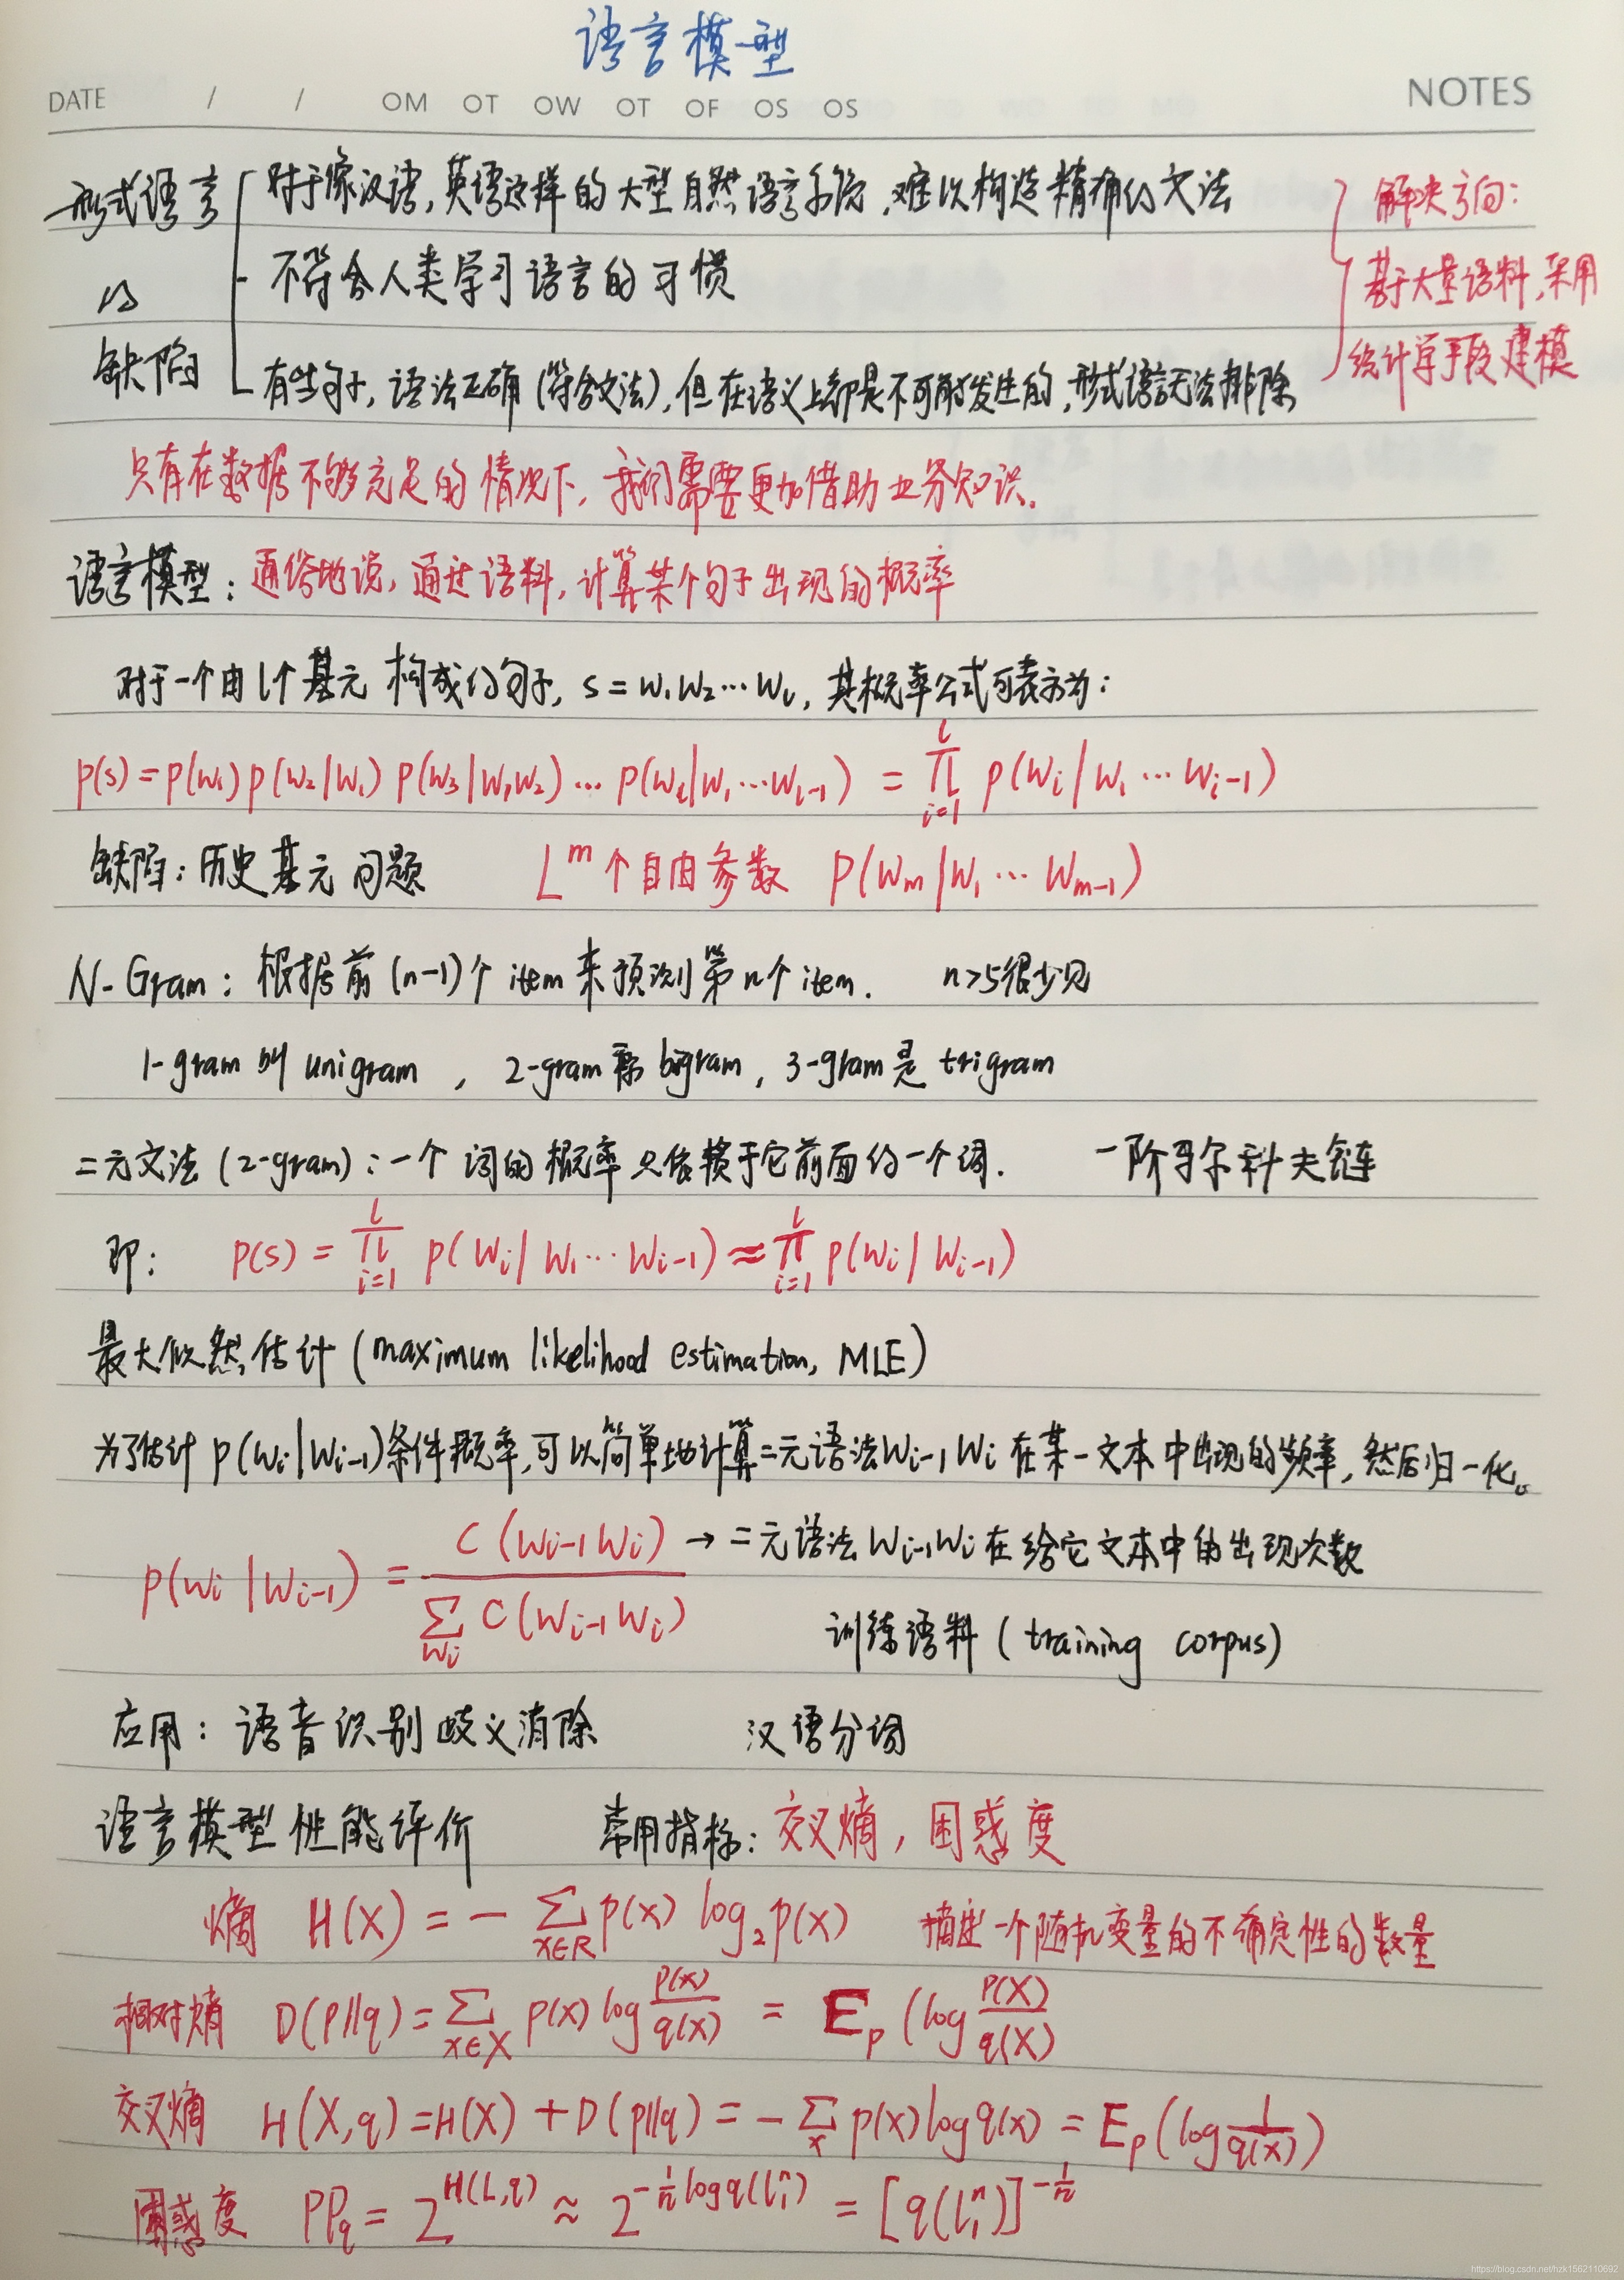 语言模型
DATE / / OM OT OW OT OF OS OS NOTES
形式语言的缺陷
对于像汉语,英语这样的大型自然语言系统,难以构造精确的文法
不符合人类学习语言的习惯
有些句子,语法正确(符合文法),但在语义上却是不可能发生的,形式语言无法排除
解决方向:
基于大量语料,采用
统计学手段建模
只有在数据不够充足的情况下,我们需要更加借助业务知识.
语言模型:通俗地说,通过语料,计算某个句子出现的概率
对于一个由l个基元构成的句子,s=w₁w₂…wₗ,其概率公式可表示为:
p(s)=p(w₁)p(w₂|w₁)p(w₃|w₁w₂)…p(wₗ|w₁…wₗ₋₁) = ∏_{i=1}^{l} p(wᵢ|w₁…wᵢ₋₁)
缺陷:历史基元问题 L^m个自由参数 P(w_m|w₁…w_{m-1})
N-Gram:根据前(n-1)个item来预测第n个item. n>5很少见
1-gram 叫 unigram , 2-gram 称 bigram, 3-gram是 trigram
二元文法(2-gram):一个词的概率只依赖于它前面的一个词. 一阶马尔科夫链
即: p(s) = ∏_{i=1}^{l} p(wᵢ|w₁…wᵢ₋₁) ≈ ∏_{i=1}^{l} p(wᵢ|wᵢ₋₁)
最大似然估计(maximum likelihood estimation, MLE)
为了估计p(wᵢ|wᵢ₋₁)条件概率,可以简单地计算二元语法wᵢ₋₁wᵢ在某一文本中出现的频率,然后归一化。
p(wᵢ|wᵢ₋₁) = C(wᵢ₋₁wᵢ) / ∑_{wᵢ} C(wᵢ₋₁wᵢ) → 二元语法wᵢ₋₁wᵢ在给定文本中的出现次数
训练语料(training corpus)
应用:语音识别歧义消除 汉语分词
语言模型性能评价 常用指标:交叉熵,困惑度
熵 H(X) = - ∑_{x∈R} p(x) log₂p(x) 描述一个随机变量的不确定性的数量
相对熵 D(p||q)=∑_{x∈X} p(x) log p(x)/q(x) = E_p(log p(X)/q(X)
交叉熵 H(X,q)=H(X)+D(p||q)=-∑_x p(x)log q(x) = E_p(log 1/q(x))
困惑度 PP_q = 2^{H(L,q)} ≈ 2^{-1/n log q(l₁ⁿ)} = [q(l₁ⁿ)]^{-1/n}
https://blog.csdn.net/hzk1562110692